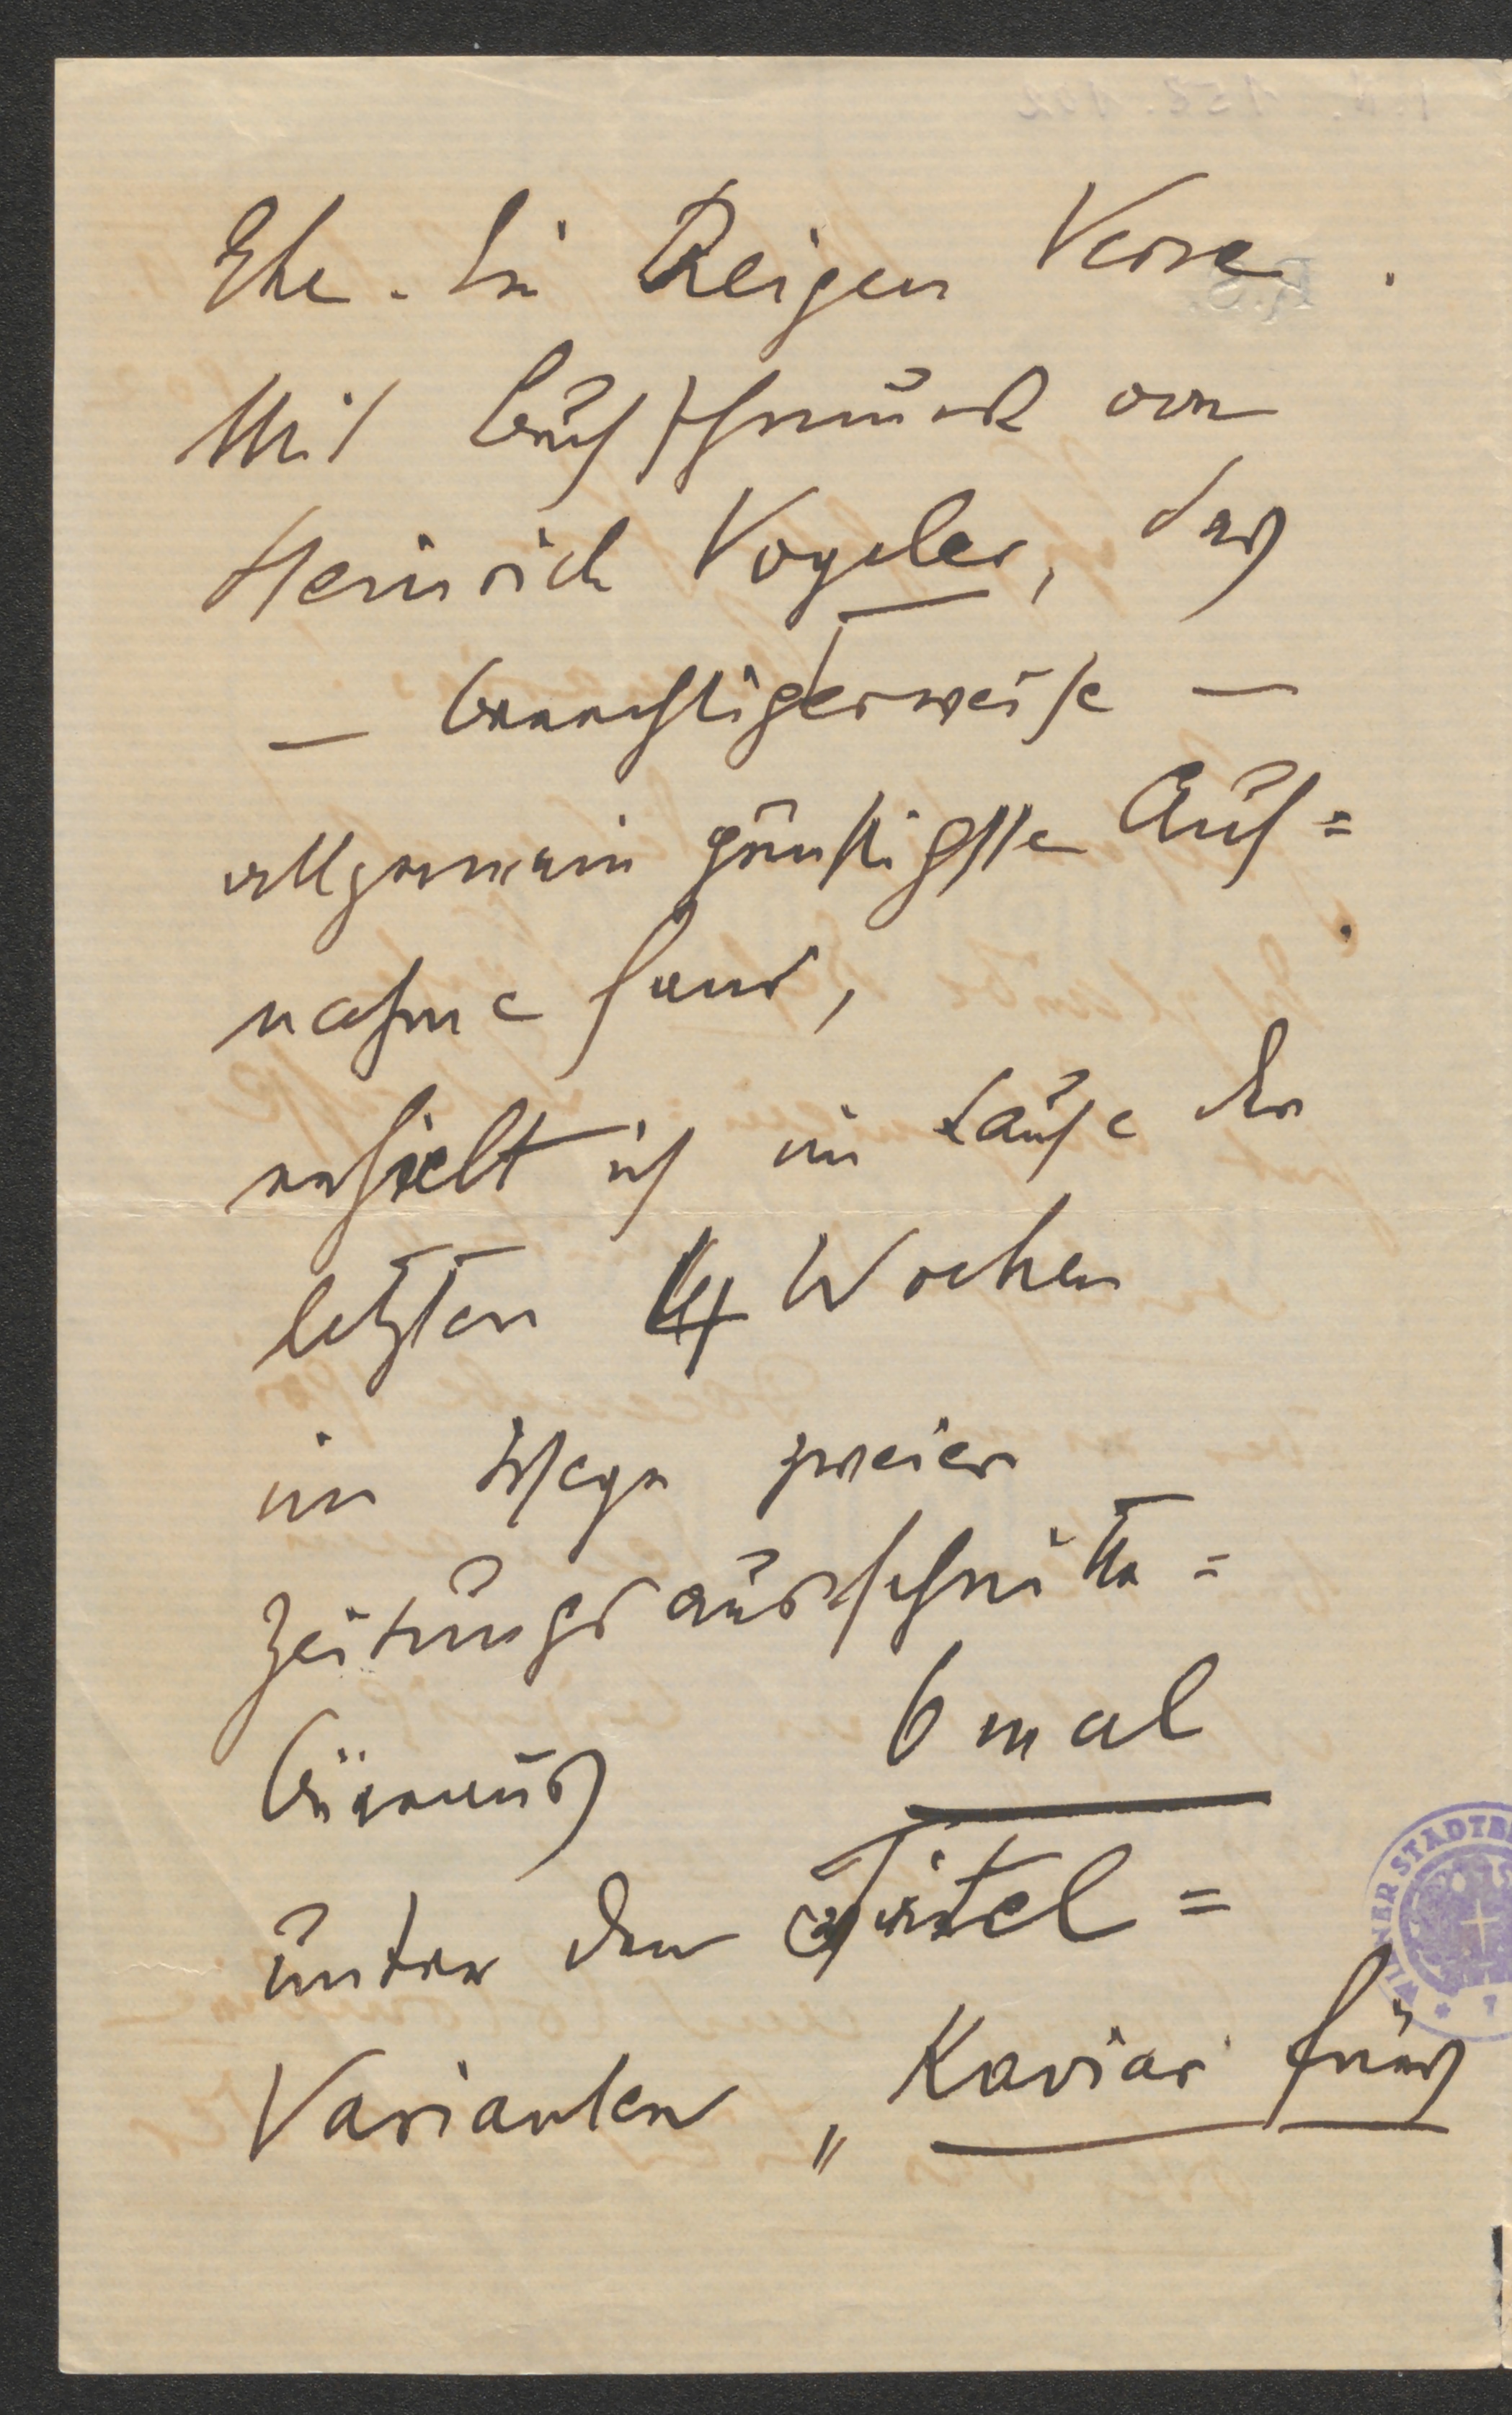 Ehe. Ein Reigen Verse.
Mit Buchschmuck von
Heinrich Vogeler, das
— berechtigterweise —
allgemein günstigste Auf=
nahme fand,
erhielt ich im Laufe der
letzten 4 Wochen
im Wege zweier
Zeitungsausschnitte=
bureaus 6 mal
unter den Titel=
Varianten „Kaviar fürs
WIENER STADTB